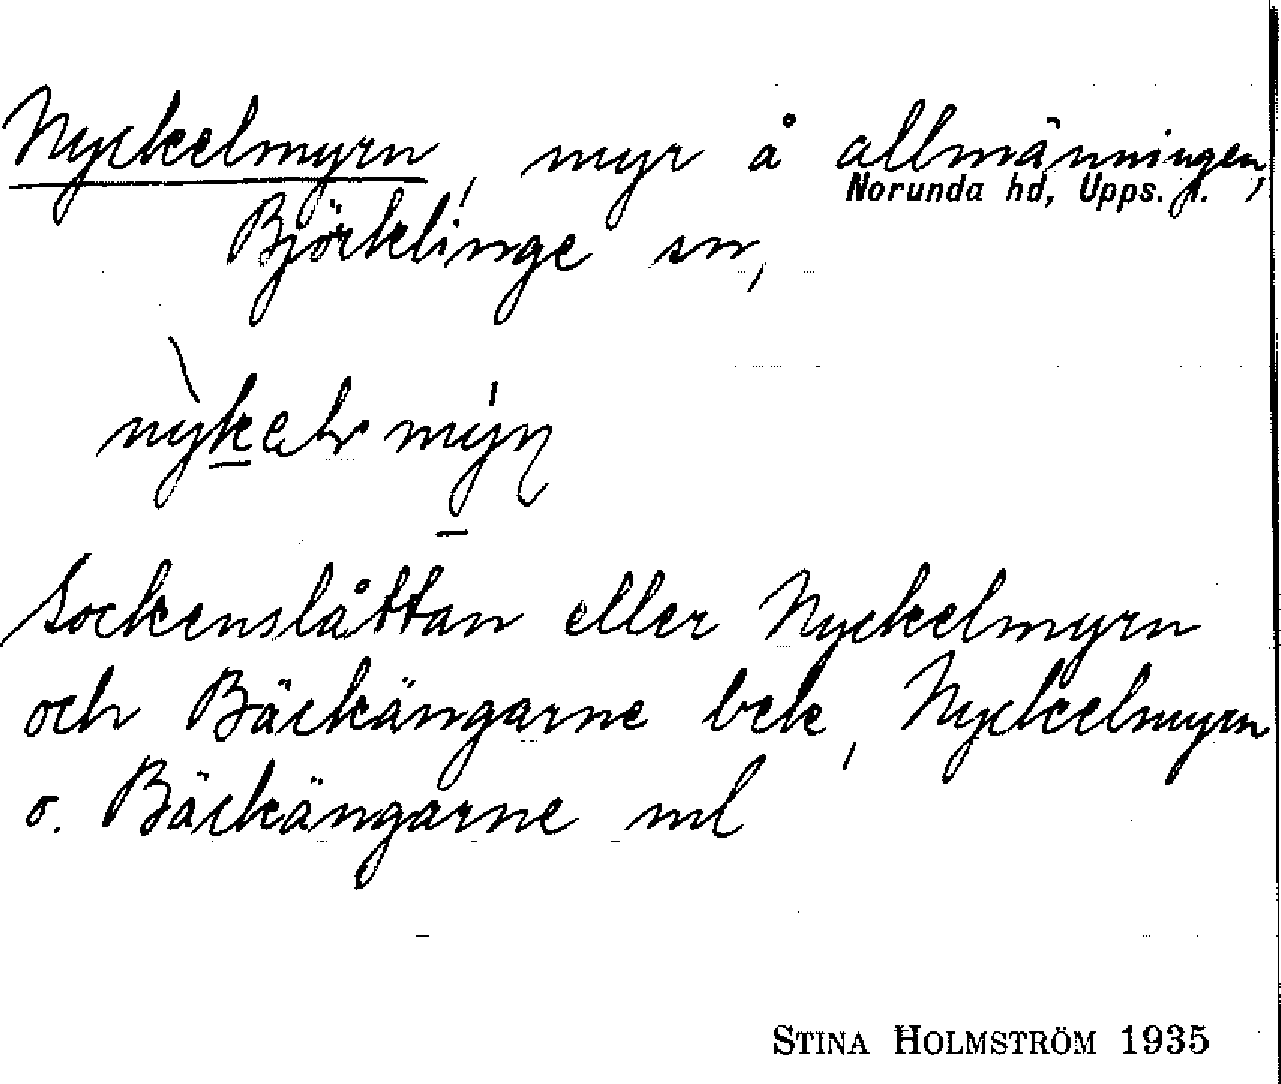 Nyckelmyrn, myr å allmänningen,
Norunda hd, Upps. l.
Björklinge sn,
Sockenslåttan eller Nyckelmyrn
och Bäckängarne bek, Nyckelmyrn
o. Bäckängarne ml
STINA HOLMSTRÖM 1935